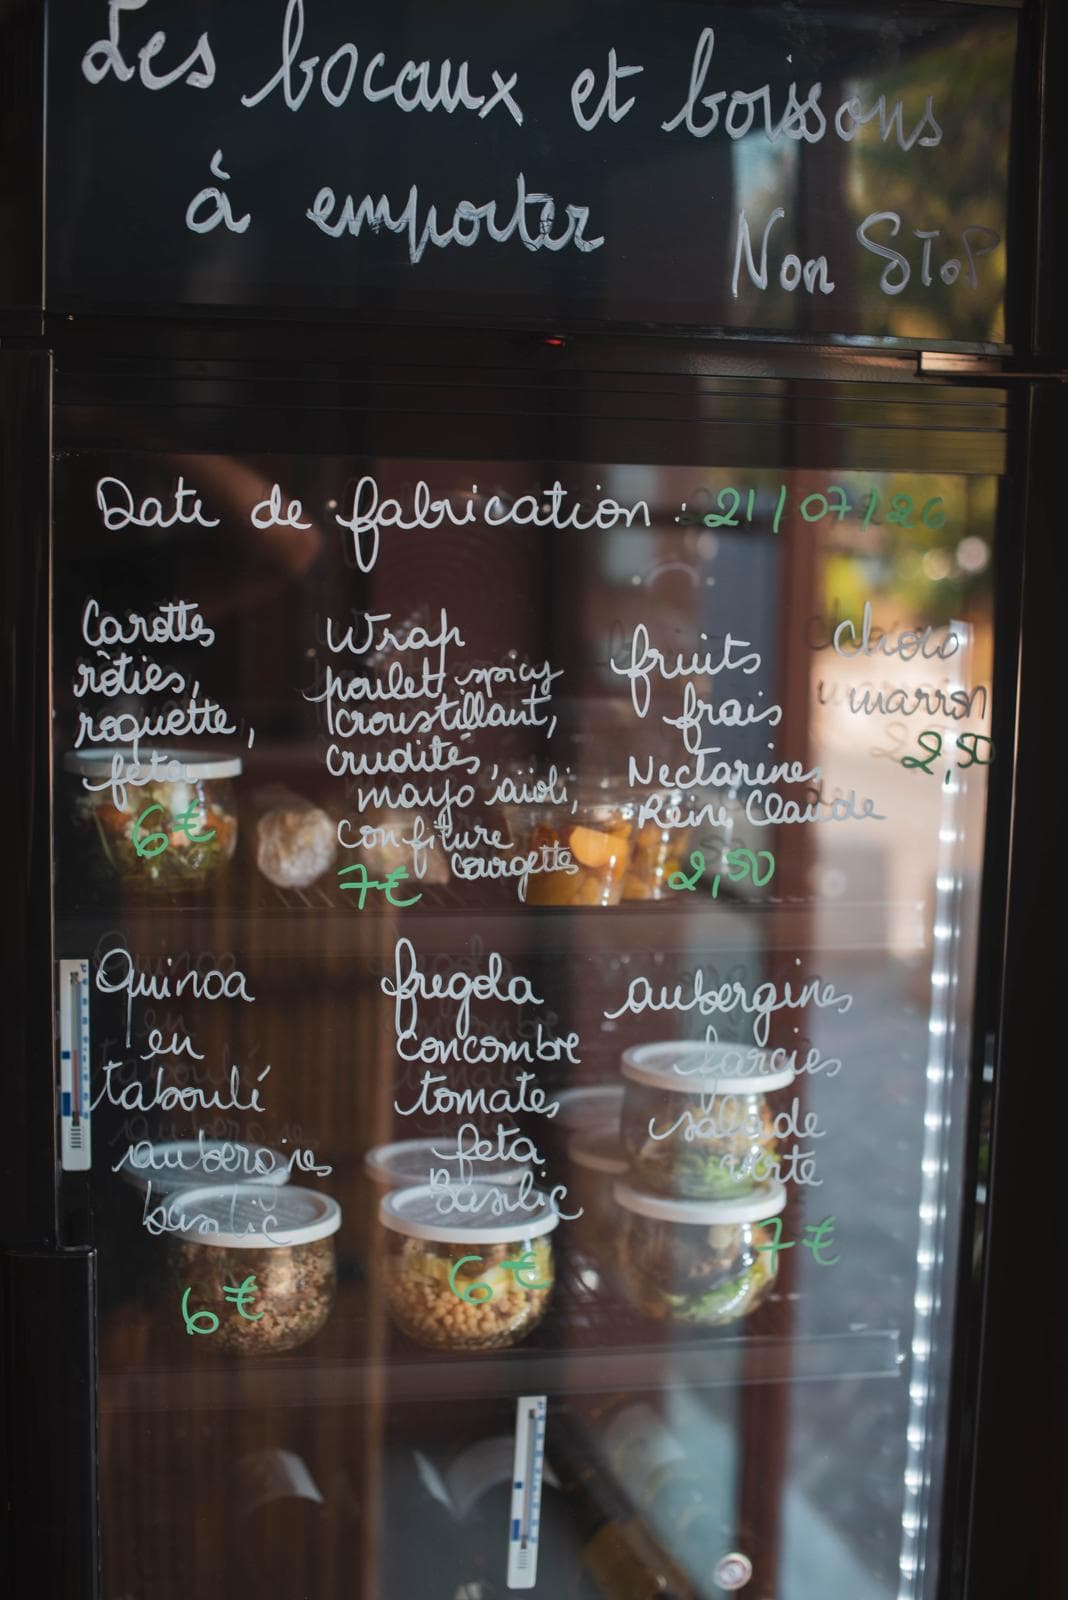 Les bocaux et boissons
à emporter
Non SToP
Date de fabrication : 21/07/26
Carottes
rôties,
roquette,
feta
6€
Wrap
poulet spicy
croustillant,
crudités,
mayo aïoli,
confiture
courgette
7€
fruits
frais
Nectarines
Reine Claude
2,50
choco
marron
2,50
Quinoa
en
taboulé
aubergines
basilic
6€
fregola
concombre
tomates
feta
Basilic
6€
aubergines
farcies
salade
verte
7€